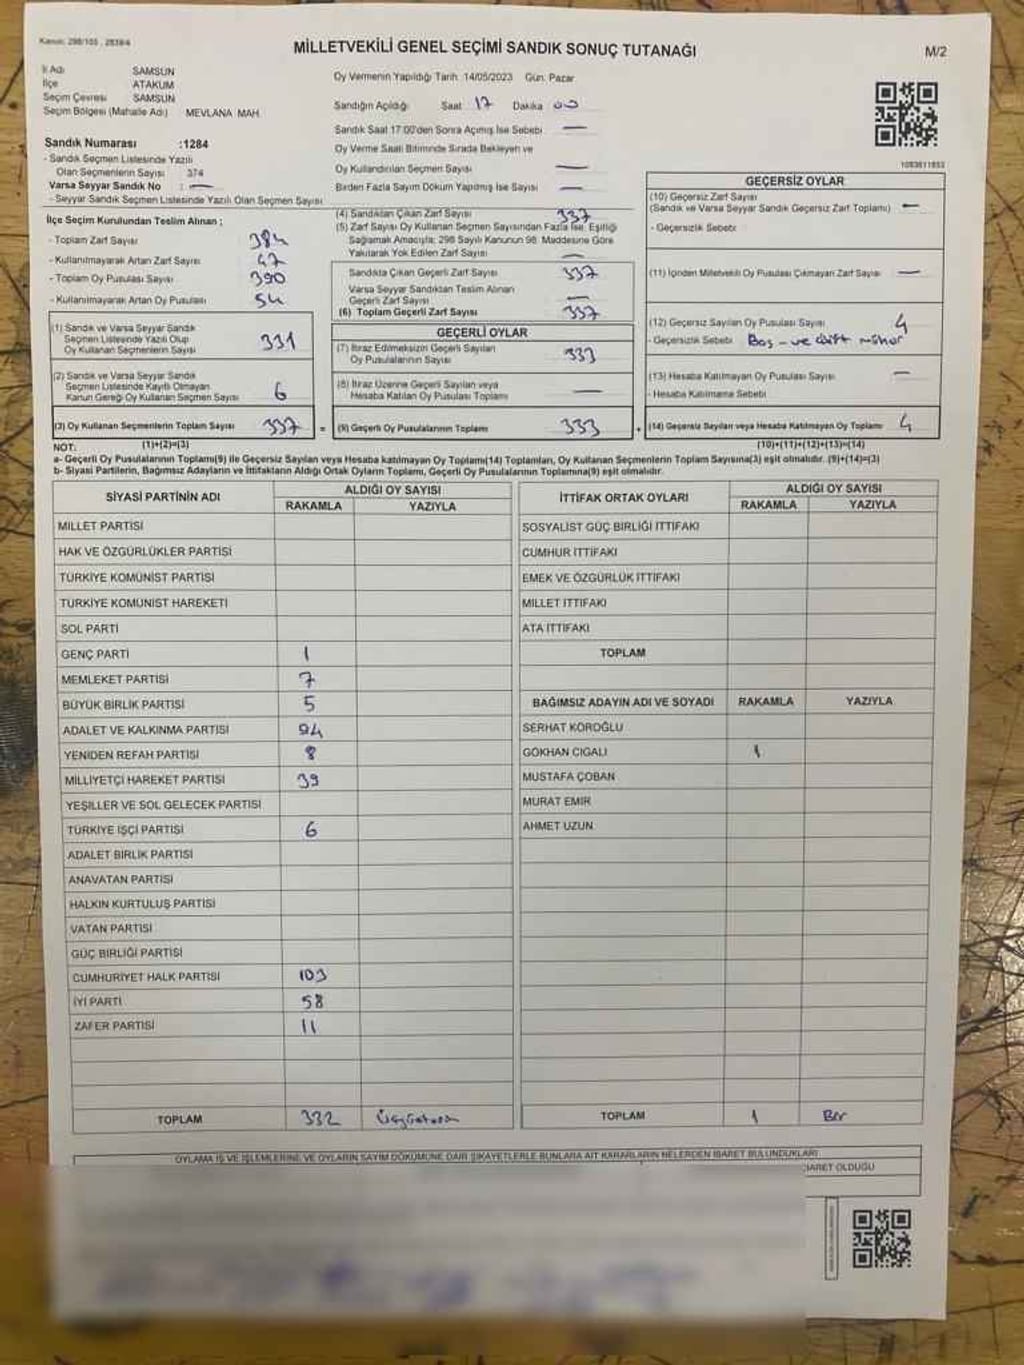 Kanun: 298/105 , 2839/4
MİLLETVEKİLİ GENEL SEÇİMİ SANDIK SONUÇ TUTANAĞI
M/2
İl Adı SAMSUN
İlçe ATAKUM
Seçim Çevresi SAMSUN
Seçim Bölgesi (Mahalle Adı) MEVLANA MAH.
Sandık Numarası :1284
- Sandık Seçmen Listesinde Yazılı
Olan Seçmenlerin Sayısı 374
Varsa Seyyar Sandık No : —
- Seyyar Sandık Seçmen Listesinde Yazılı Olan Seçmen Sayısı
Oy Vermenin Yapıldığı Tarih: 14/05/2023 Gün: Pazar
Sandığın Açıldığı Saat 17 Dakika 00
Sandık Saat 17:00'den Sonra Açımış İse Sebebi —
Oy Verme Saati Bitiminde Sırada Bekleyen ve
Oy Kullandırılan Seçmen Sayısı —
Birden Fazla Sayım Döküm Yapılmış İse Sayısı —
1083811853
İlçe Seçim Kurulundan Teslim Alınan ;
- Toplam Zarf Sayısı 384
- Kullanılmayarak Artan Zarf Sayısı 47
- Toplam Oy Pusulası Sayısı 390
- Kullanılmayarak Artan Oy Pusulası 54
(1) Sandık ve Varsa Seyyar Sandık
Seçmen Listesinde Yazılı Olup
Oy Kullanan Seçmenlerin Sayısı 331
(2) Sandık ve Varsa Seyyar Sandık
Seçmen Listesinde Kayıtlı Olmayan
Kanun Gereği Oy Kullanan Seçmen Sayısı 6
(3) Oy Kullanan Seçmenlerin Toplam Sayısı 337 =
(4) Sandıktan Çıkan Zarf Sayısı 337
(5) Zarf Sayısı Oy Kullanan Seçmen Sayısından Fazla İse, Eşitliği
Sağlamak Amacıyla; 298 Sayılı Kanunun 98. Maddesine Göre
Yakılarak Yok Edilen Zarf Sayısı —
Sandıkta Çıkan Geçerli Zarf Sayısı 337
Varsa Seyyar Sandıktan Teslim Alınan
Geçerli Zarf Sayısı —
(6) Toplam Geçerli Zarf Sayısı 337
GEÇERLİ OYLAR
(7) İtiraz Edilmeksizin Geçerli Sayılan
Oy Pusulalarının Sayısı 333
(8) İtiraz Üzerine Geçerli Sayılan veya
Hesaba Katılan Oy Pusulası Toplamı —
(9) Geçerli Oy Pusulalarının Toplamı 333 +
GEÇERSİZ OYLAR
(10) Geçersiz Zarf Sayısı
(Sandık ve Varsa Seyyar Sandık Geçersiz Zarf Toplamı) —
- Geçersizlik Sebebi:
(11) İçinden Milletvekili Oy Pusulası Çıkmayan Zarf Sayısı —
(12) Geçersiz Sayılan Oy Pusulası Sayısı 4
- Geçersizlik Sebebi: Boş - ve çift mühür
(13) Hesaba Katılmayan Oy Pusulası Sayısı —
- Hesaba Katılmama Sebebi:
(14) Geçersiz Sayılan veya Hesaba Katılmayan Oy Toplamı 4
NOT: (1)+(2)=(3) (10)+(11)+(12)+(13)=(14)
a- Geçerli Oy Pusulalarının Toplamı(9) ile Geçersiz Sayılan veya Hesaba katılmayan Oy Toplamı(14) Toplamları, Oy Kullanan Seçmenlerin Toplam Sayısına(3) eşit olmalıdır. (9)+(14)=(3)
b- Siyasi Partilerin, Bağımsız Adayların ve İttifakların Aldığı Ortak Oyların Toplamı, Geçerli Oy Pusulalarının Toplamına(9) eşit olmalıdır.
SİYASİ PARTİNİN ADI ALDIĞI OY SAYISI
RAKAMLA YAZIYLA
MİLLET PARTİSİ
HAK VE ÖZGÜRLÜKLER PARTİSİ
TÜRKİYE KOMÜNİST PARTİSİ
TÜRKİYE KOMÜNİST HAREKETİ
SOL PARTİ
GENÇ PARTİ 1
MEMLEKET PARTİSİ 7
BÜYÜK BİRLİK PARTİSİ 5
ADALET VE KALKINMA PARTİSİ 94
YENİDEN REFAH PARTİSİ 8
MİLLİYETÇİ HAREKET PARTİSİ 39
YEŞİLLER VE SOL GELECEK PARTİSİ
TÜRKİYE İŞÇİ PARTİSİ 6
ADALET BİRLİK PARTİSİ
ANAVATAN PARTİSİ
HALKIN KURTULUŞ PARTİSİ
VATAN PARTİSİ
GÜÇ BİRLİĞİ PARTİSİ
CUMHURİYET HALK PARTİSİ 103
İYİ PARTİ 58
ZAFER PARTİSİ 11
TOPLAM 332
İTTİFAK ORTAK OYLARI ALDIĞI OY SAYISI
RAKAMLA YAZIYLA
SOSYALİST GÜÇ BİRLİĞİ İTTİFAKI
CUMHUR İTTİFAKI
EMEK VE ÖZGÜRLÜK İTTİFAKI
MİLLET İTTİFAKI
ATA İTTİFAKI
TOPLAM
BAĞIMSIZ ADAYIN ADI VE SOYADI RAKAMLA YAZIYLA
SERHAT KÖROĞLU
GÖKHAN CIGALI 1
MUSTAFA ÇOBAN
MURAT EMİR
AHMET UZUN
TOPLAM 1 Bir
OYLAMA İŞ VE İŞLEMLERİNE VE OYLARIN SAYIM DÖKÜMÜNE DAİR ŞİKAYETLERLE BUNLARA AİT KARARLARIN NELERDEN İBARET BULUNDUKLARI
İBARET OLDUĞU